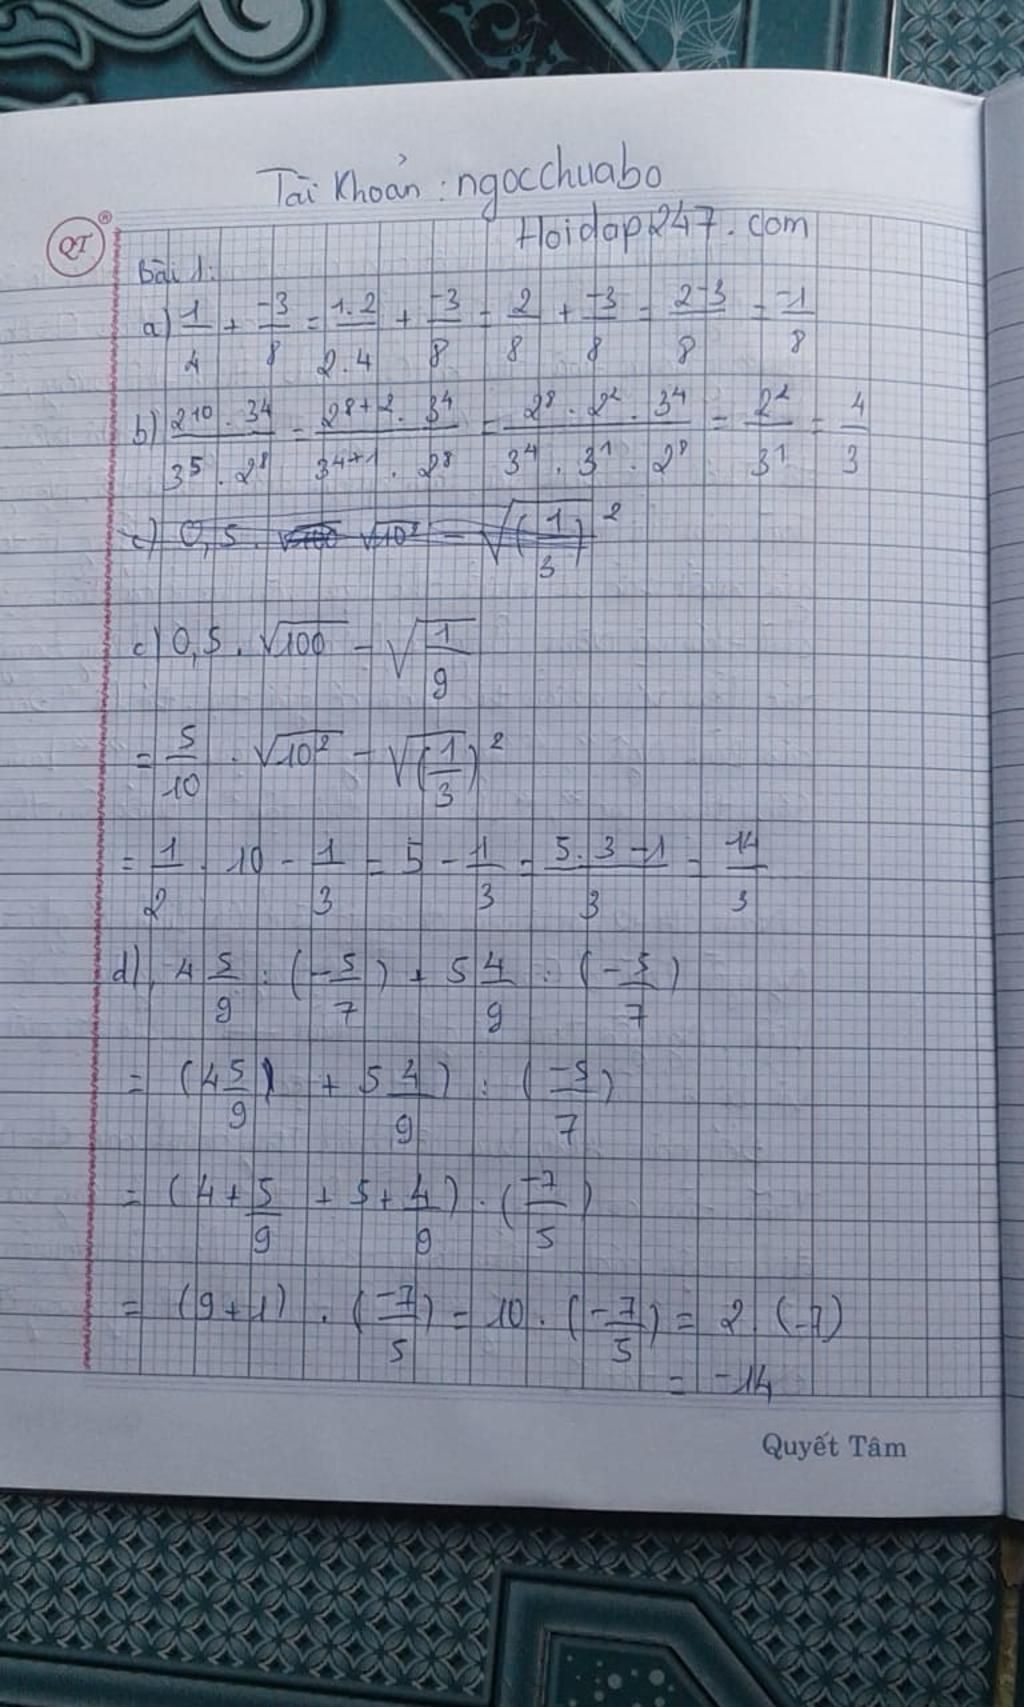 Tài Khoản : ngocchuabo
Hoidap247.com
QT ®
Bài 1:
a) 1/4 + -3/8 = 1.2/2.4 + -3/8 = 2/8 + -3/8 = 2-3/8 = -1/8
b) 2^10 . 3^4 / 3^5 . 2^8 = 2^8+2 . 3^4 / 3^4+1 . 2^8 = 2^8 . 2^2 . 3^4 / 3^4 . 3^1 . 2^8 = 2^2/3^1 = 4/3
c) 0,5 . √10^2 - √(1/3)^2
c) 0,5 . √100 - √1/9
= 5/10 . √10^2 - √(1/3)^2
= 1/2 . 10 - 1/3 = 5 - 1/3 = 5.3-1/3 = 14/3
d) 4 5/9 : (-5/7) + 5 4/9 : (-5/7)
= (4 5/9) + 5 4/9) : (-5/7)
= (4 + 5/9 + 5 + 4/9) . (-7/5)
= (9+1) . (-7/5) = 10 . (-7/5) = 2 . (-7)
= -14
Quyết Tâm